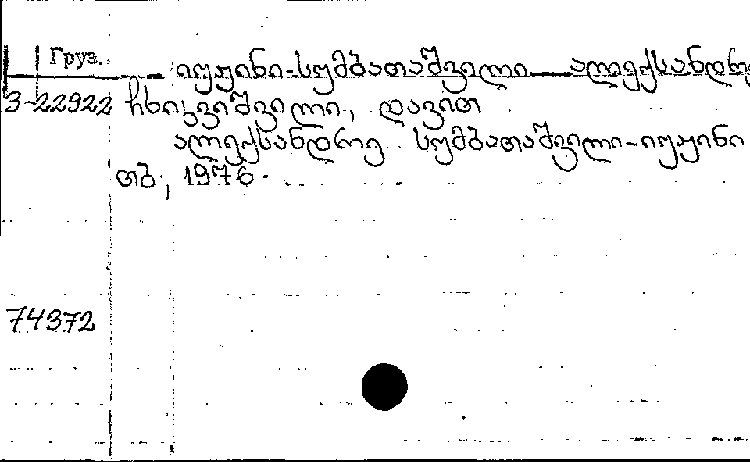 Груз.
იუჟინი-სუმბათაშვილი ალექსანდრე
3-22922 ჩხიკვიშვილი, დავით
ალექსანდრე სუმბათაშვილი-იუჟინი
თბ, 1976.
74372